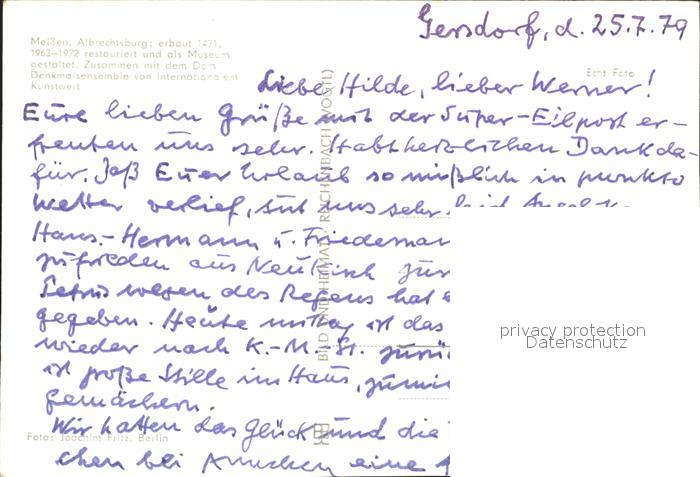 Gersdorf, d. 25.7.79
Meißen, Albrechtsburg; erbaut 1471,
1963—1972 restauriert und als Museum
gestaltet. Zusammen mit dem Dom
Denkmalsensemble von internationalem
Kunstwert
Echt Foto
Liebe Hilde, lieber Werner!
Eure lieben Grüße mit der Super-Eilpost er-
freuten uns sehr. Habt herzlichen Dank da-
für. Daß Euer Urlaub so mißlich in punkto
Wetter verlief, tut uns sehr leid.
Hans-Hermann u. Friedemar
zufrieden aus Neukirch zur
Petrus wegen des Regens hat
gegeben. Heute mittag ist das
wieder nach K.-M.-St. zurü
ist große Stille im Haus, zumi
Gemächern.
Wir hatten das Glück und die
chen bei Annchen eine
Foto: Joachim Fritz, Berlin
BILD UND HEIMAT REICHENBACH (VOGTL)
privacy protection
Datenschutz